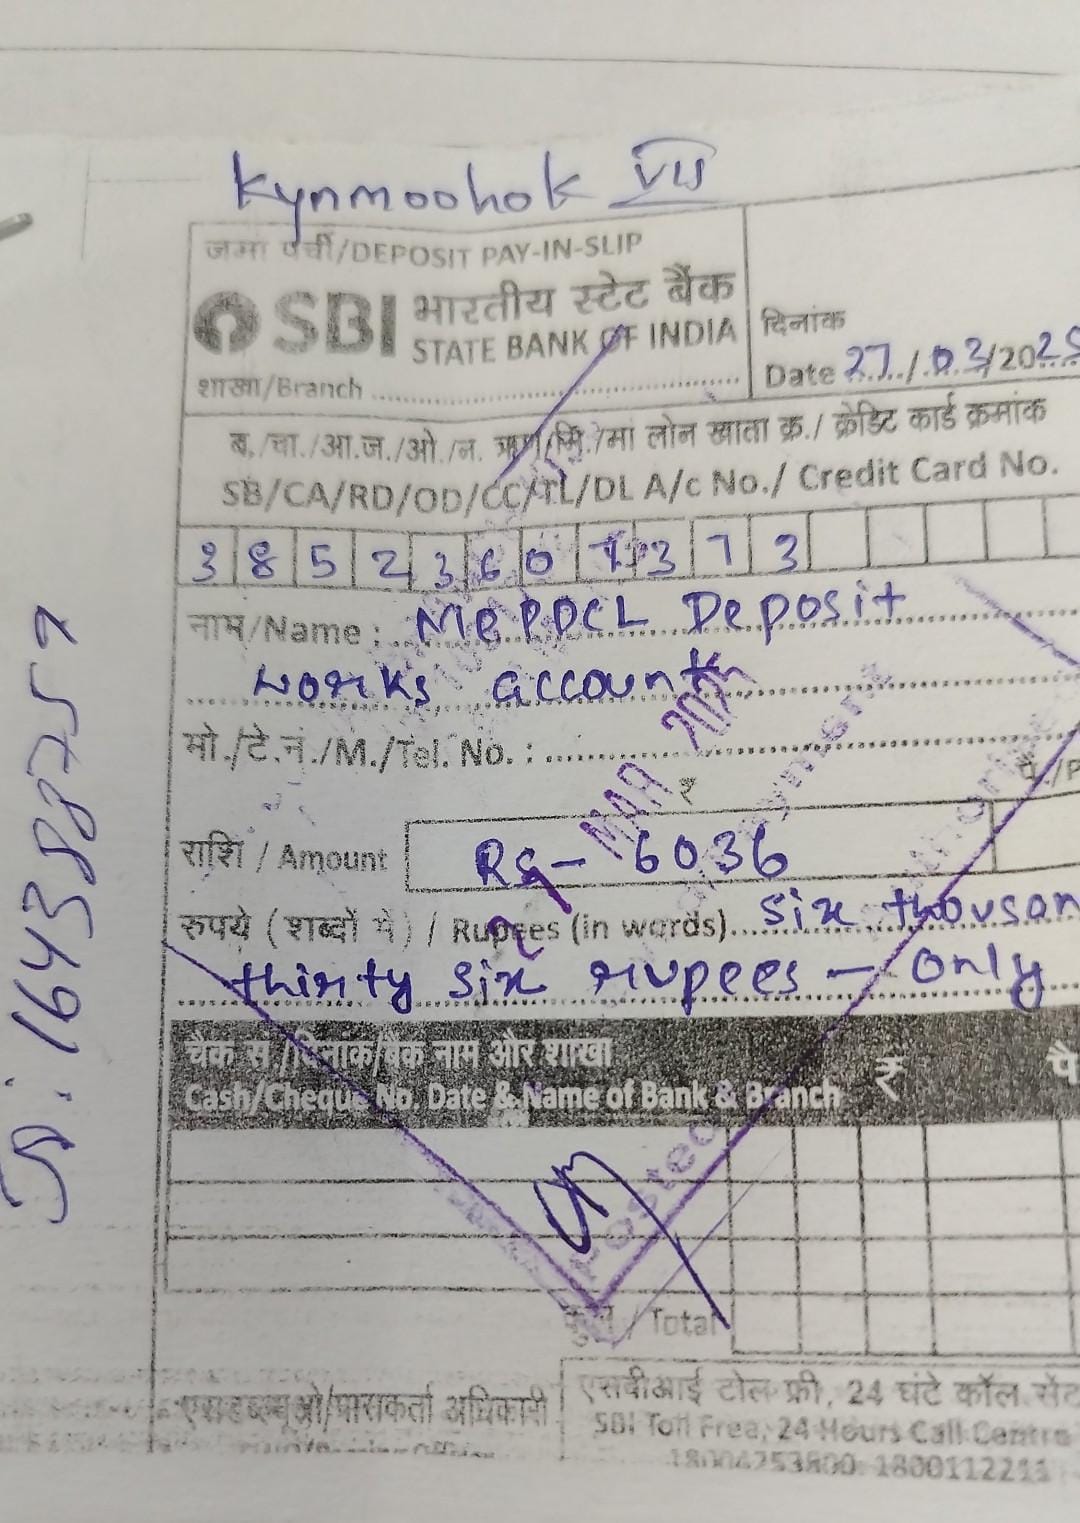 Kynmoohok VII
जमा पर्ची/DEPOSIT PAY-IN-SLIP
SBI भारतीय स्टेट बैंक
STATE BANK OF INDIA
दिनांक
Date 27/03/2025
शाखा/Branch
ब./चा./आ.ज./ओ./न. ऋण/मि./मां लोन खाता क्र./ क्रेडिट कार्ड क्रमांक
SB/CA/RD/OD/CC/TL/DL A/c No./ Credit Card No.
3 8 5 2 3 6 0 7 3 7 3
नाम/Name : MePDCL Deposit
works account
मो./टे.नं./M./Tel. No. :
MAR 2025
₹
राशि / Amount Rs- 6036
रुपये (शब्दों में) / Rupees (in words) six thousan
thirty six rupees - only
चैक सं./दिनांक/बैंक नाम और शाखा
Cash/Cheque No. Date & Name of Bank & Branch ₹ पै
कुल / Total
एसडब्ल्यूओ/पासकर्ता अधिकारी
एसबीआई टोल फ्री, 24 घंटे कॉल सेंट
SBI Toll Free, 24 Hours Call Centre
18004253800, 1800112211
J. : 164388757